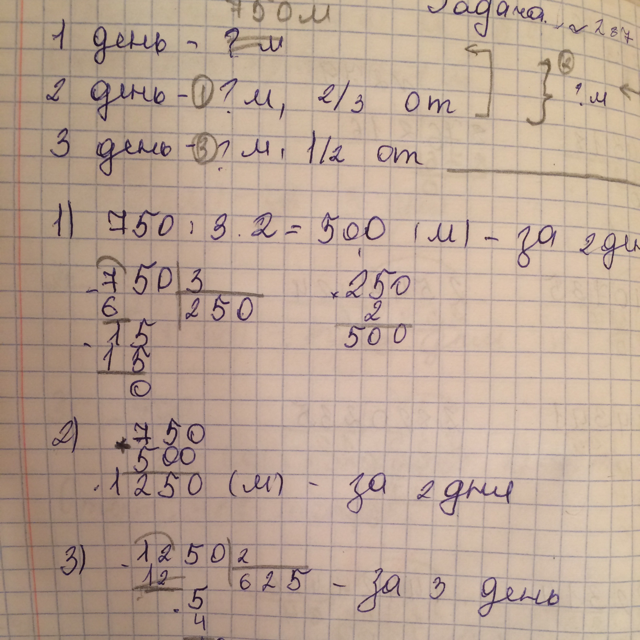 750м Задача № 237
1 день - ? м
2 день - ① ? м, 2/3 от } ② ? м
3 день - ③ ? м, 1/2 от
1) 750 : 3 · 2 = 500 (м) - за 2 ден
- 750 | 3
6 250
- 15
15
0
× 250
2
500
2) + 750
500
1250 (м) - за 2 дня
3) - 1250 | 2
12 625 - за 3 день
- 5
4